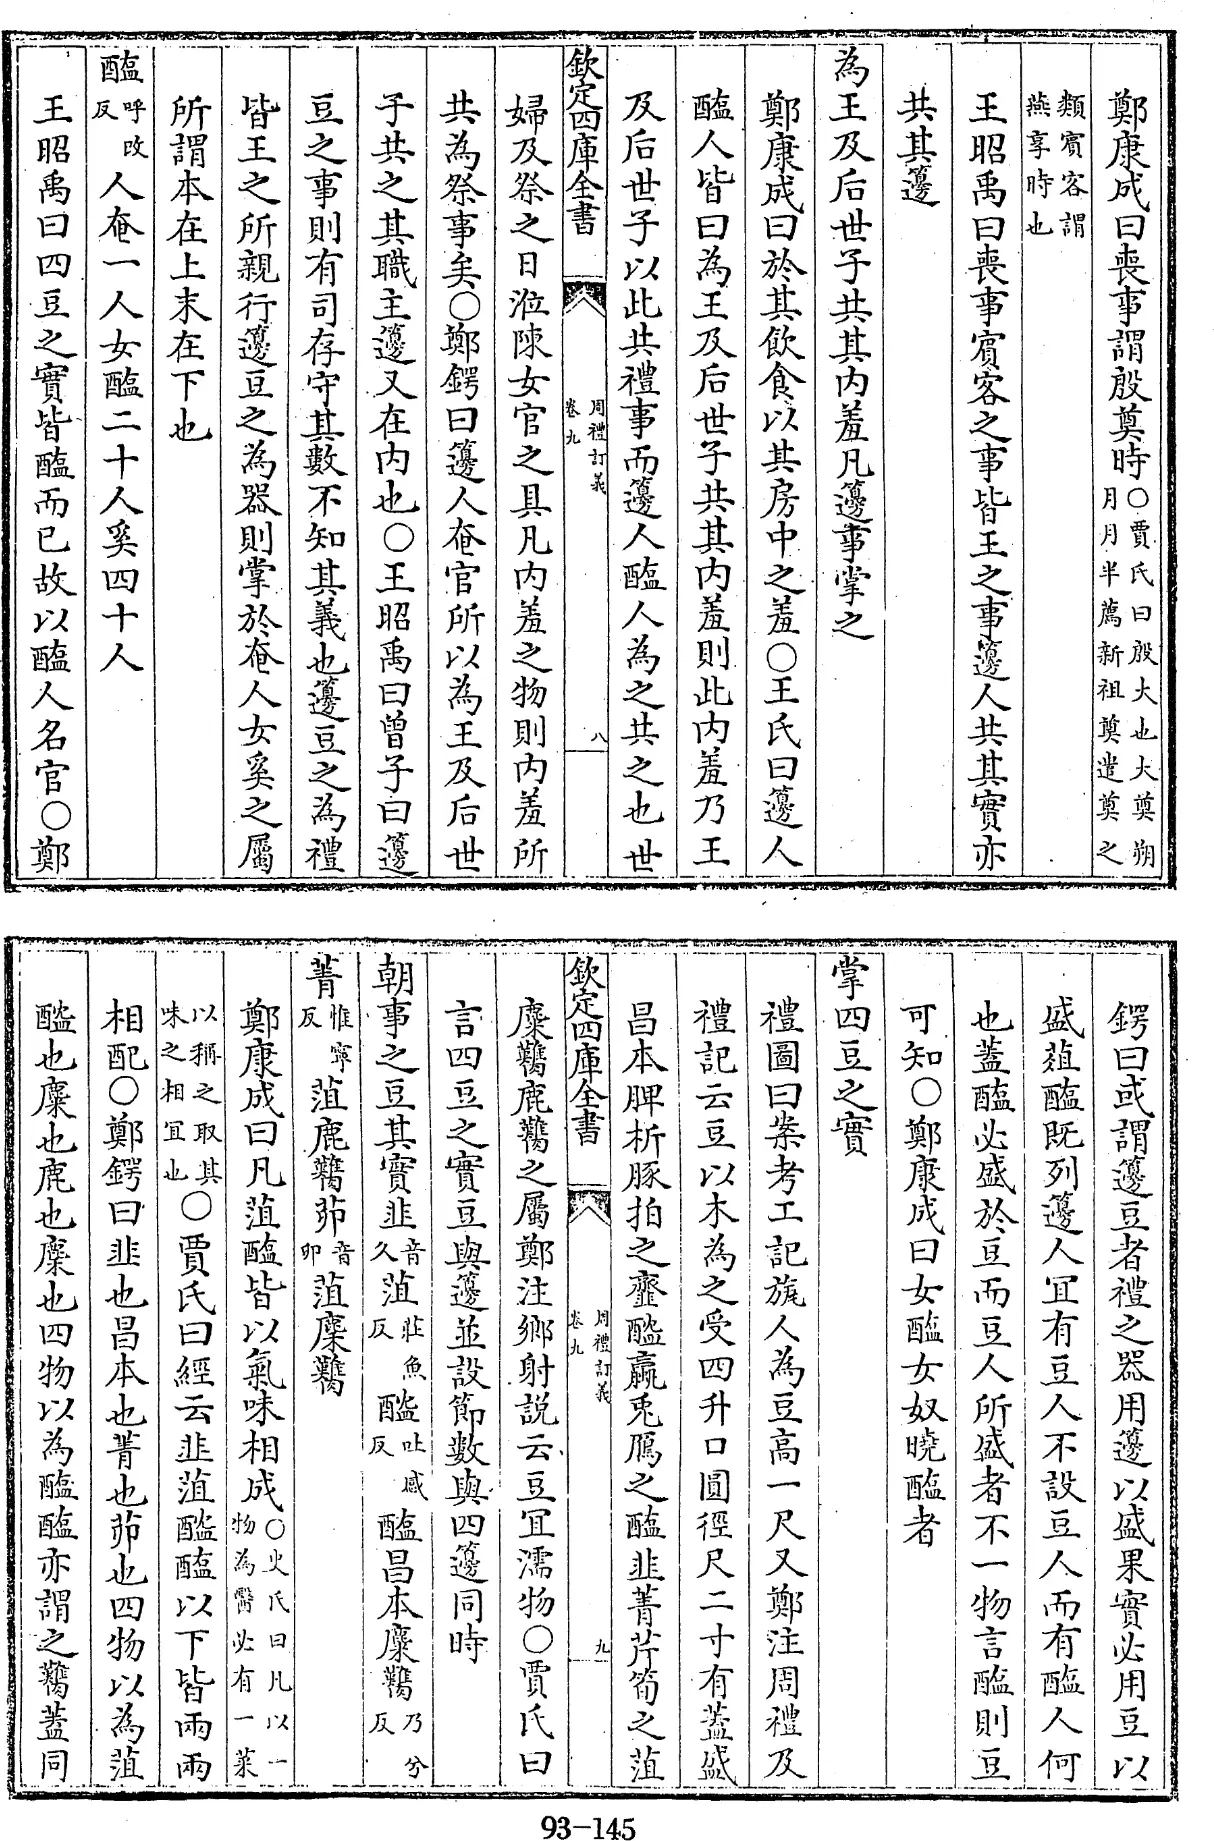 鄭康成曰喪事謂殷奠時○賈氏曰殷大也大奠朔月月半薦新祖奠遣奠之
類賓客謂燕享時也
王昭禹曰喪事賓客之事皆王之事籩人共其實亦
共其籩
為王及后世子共其内羞凡籩事掌之
鄭康成曰於其飲食以共房中之羞○王氏曰籩人
醢人皆曰為王及后世子共其内羞則此内羞乃王
及后世子以此共禮事而籩人醢人為之共之也世
欽定四庫全書
周禮訂義
卷九
八
婦及祭之日涖陳女官之具凡内羞之物則内羞所
共為祭事矣○鄭鍔曰籩人奄官所以為王及后世
子共之其職主籩又在内也○王昭禹曰曾子曰籩
豆之事則有司存守其數不知其義也籩豆之為禮
皆王之所親行籩豆之為器則掌於奄人女奚之屬
所謂本在上末在下也
醢呼改反人奄一人女醢二十人奚四十人
王昭禹曰四豆之實皆醢而已故以醢人名官○鄭
鍔曰或謂籩豆者禮之器用籩以盛果實必用豆以
盛菹醢既列籩人冝有豆人不設豆人而有醢人何
也蓋醢必盛於豆而豆人所盛者不一物言醢則豆
可知○鄭康成曰女醢女奴曉醢者
掌四豆之實
禮圖曰案考工記旊人為豆高一尺又鄭注周禮及
禮記云豆以木為之受四升口圓徑尺二寸有蓋盛
昌本脾析豚拍之齏醓蠃兎鴈之醢韭菁芹筍之菹
欽定四庫全書
周禮訂義
卷九
九
麋臡鹿臡之屬鄭注鄉射説云豆冝濡物○賈氏曰
言四豆之實豆與籩並設節數與四籩同時
朝事之豆其實韭音久菹莊魚反醓吐感反醢昌本麋臡乃兮反
菁惟寧反菹鹿臡茆音卯菹麇臡
鄭康成曰凡菹醢皆以氣味相成○史氏曰凡以一物為醫必有一菜
以稱之取其味之相冝也○賈氏曰經云韭菹醓醢以下皆兩兩
相配○鄭鍔曰韭也昌本也菁也茆也四物以為菹
醓也麋也鹿也麇也四物以為醢醢亦謂之臡蓋同
93-145